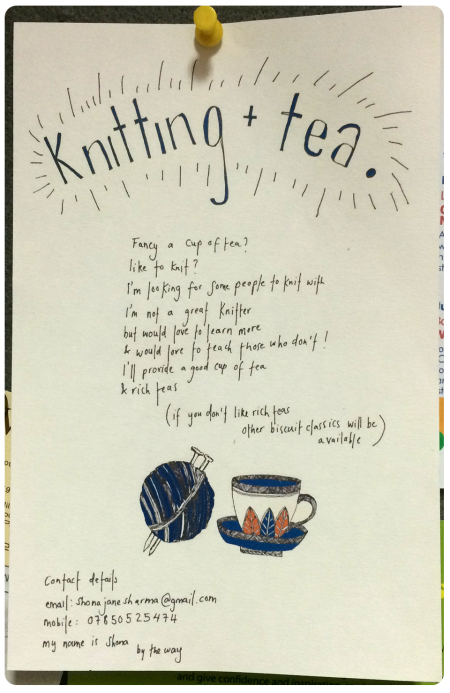 Knitting + tea.
Fancy a cup of tea?
like to knit?
I'm looking for some people to knit with
I'm not a great knitter
but would love to learn more
& would love to teach those who don't!
I'll provide a good cup of tea
& rich teas
(if you don't like rich teas
other biscuit classics will be
available)
Contact details
email: shonajanesharma@gmail.com
mobile: 07850525474
my name is Shona
by the way
and give confidence and